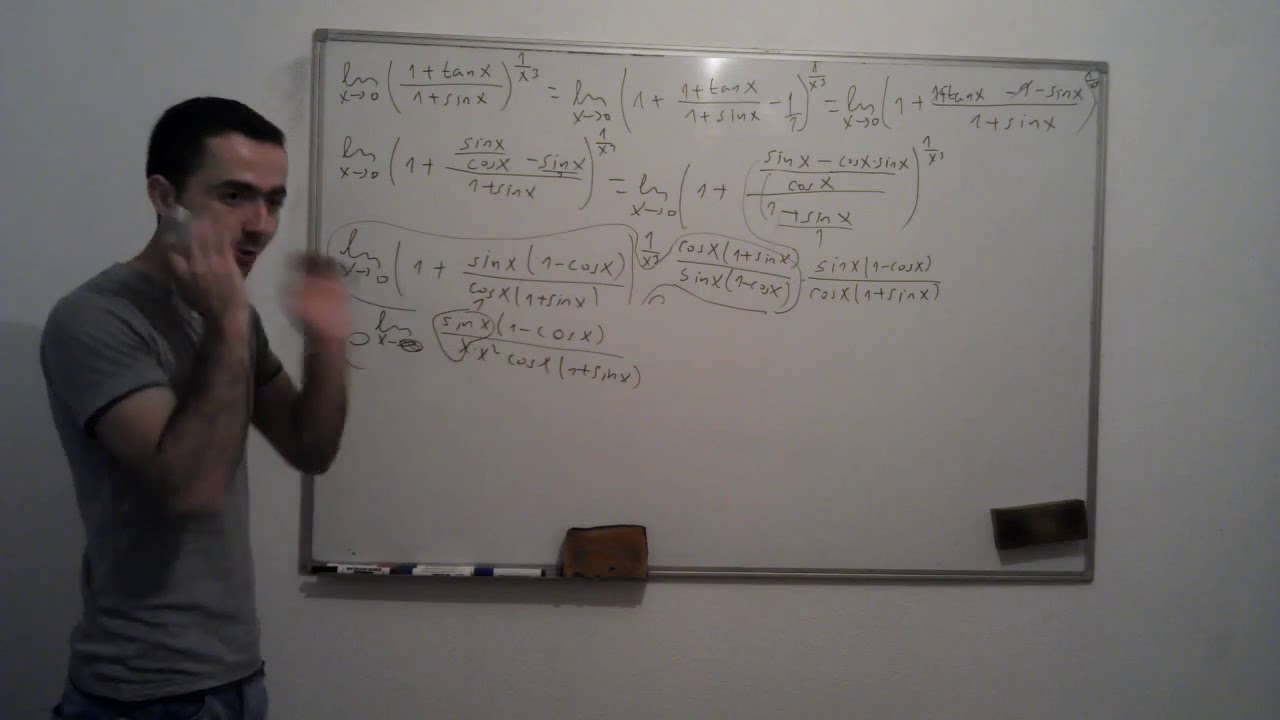 lim x→0 ( (1+tanx)/(1+sinx) )^(1/x³) = lim x→0 ( 1 + (1+tanx)/(1+sinx) - 1/1 )^(1/x³) = lim x→0 ( 1 + (1+tanx -1 -sinx)/(1+sinx) )
lim x→0 ( 1 + (sinx/cosx - sinx)/(1+sinx) )^(1/x³) = lim x→0 ( 1 + ((sinx - cosx·sinx)/cosx)/((1+sinx)/1) )^(1/x³)
lim x→0 ( 1 + (sinx(1-cosx))/(cosx(1+sinx)) )^(1/x³ · (cosx(1+sinx))/(sinx(1-cosx)) · (sinx(1-cosx))/(cosx(1+sinx))
lim x→ (sinx(1-cosx))/(x·x² cosx(1+sinx))
1